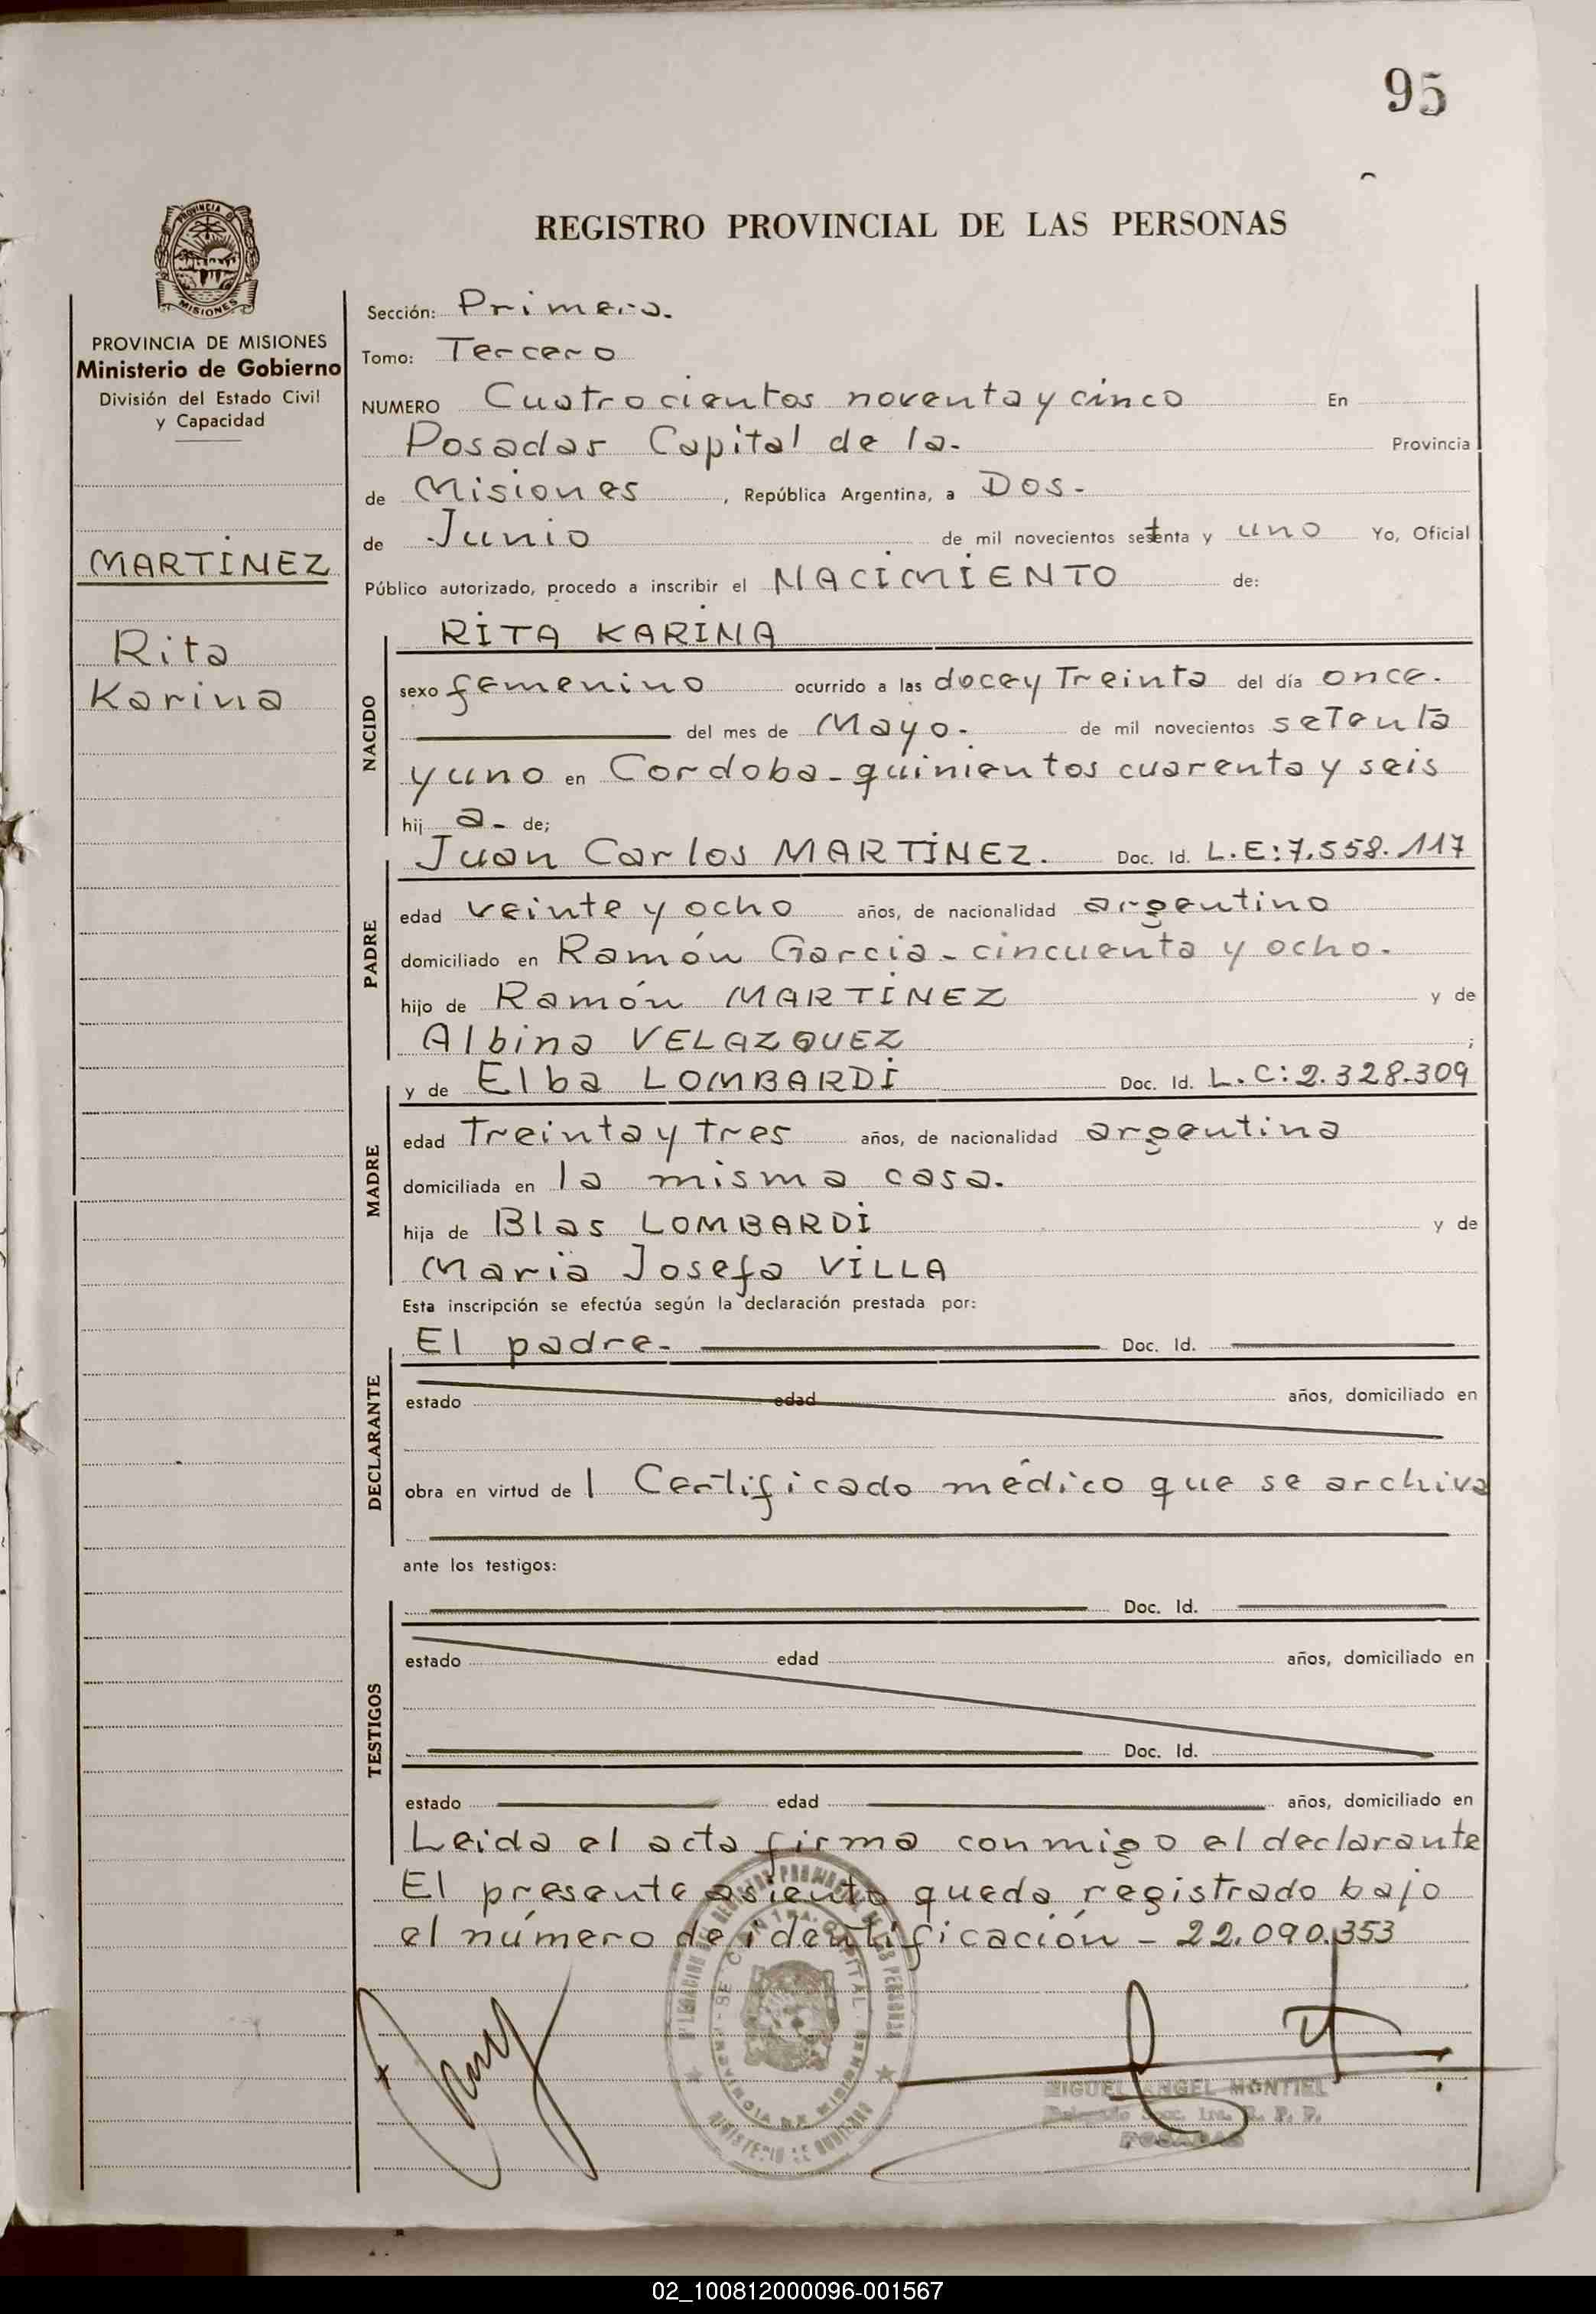 95
REGISTRO PROVINCIAL DE LAS PERSONAS
PROVINCIA DE
MISIONES
PROVINCIA DE MISIONES
Ministerio de Gobierno
División del Estado Civil
y Capacidad
MARTINEZ
Rita
Karina
Sección: Primera.
Tomo: Tercero
NUMERO Cuatrocientos noventa y cinco En
Posadas Capital de la. Provincia
de Misiones, República Argentina, a Dos.
de Junio de mil novecientos setenta y uno Yo, Oficial
Público autorizado, procedo a inscribir el NACIMIENTO de:
RITA KARINA
NACIDO
sexo femenino ocurrido a las doce y Treinta del día once.
del mes de Mayo. de mil novecientos seTenta
y uno en Cordoba - quinientos cuarenta y seis
hij a- de;
Juan Carlos MARTINEZ. Doc. Id. L.E: 7.558.117
PADRE
edad veinte y ocho años, de nacionalidad argentino
domiciliado en Ramón Garcia - cincuenta y ocho.
hijo de Ramón MARTINEZ y de
Albina VELAZQUEZ ;
y de Elba LOMBARDI Doc. Id. L.C: 2.328.309
MADRE
edad Treinta y tres años, de nacionalidad argentina
domiciliada en la misma casa.
hija de Blas LOMBARDI y de
Maria Josefa VILLA
Esta inscripción se efectúa según la declaración prestada por:
El padre. Doc. Id.
DECLARANTE
estado edad años, domiciliado en
obra en virtud de l Certificado médico que se archiva
ante los testigos:
Doc. Id.
TESTIGOS
estado edad años, domiciliado en
Doc. Id.
estado edad años, domiciliado en
Leida el acta firma conmigo el declarante
El presente asiento queda registrado bajo
el número de identificación - 22.090.353
MIGUEL ANGEL MONTIEL
POSADAS
02_100812000096-001567